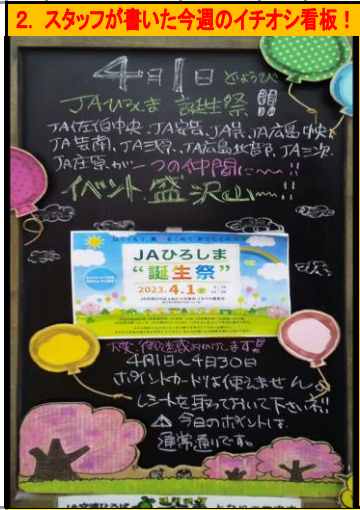 2. スタッフが書いた今週のイチオシ看板！
4月1日 どようび
JAひろしま 誕生祭！！
JA佐伯中央、JA安芸、JA呉、JA広島中央、
JA芸南、JA三原、JA広島北部、JA三次、
JA庄原が一つの仲間に〜！！
イベント盛沢山〜！！
JAひろしま
“誕生祭”
2023.4.1
大変、御迷惑おかけします！！
4月1日〜4月30日
ポイントカードは使えません。
レシートを取っておいて下さいね！！
今日のポイントは
通常通りです。